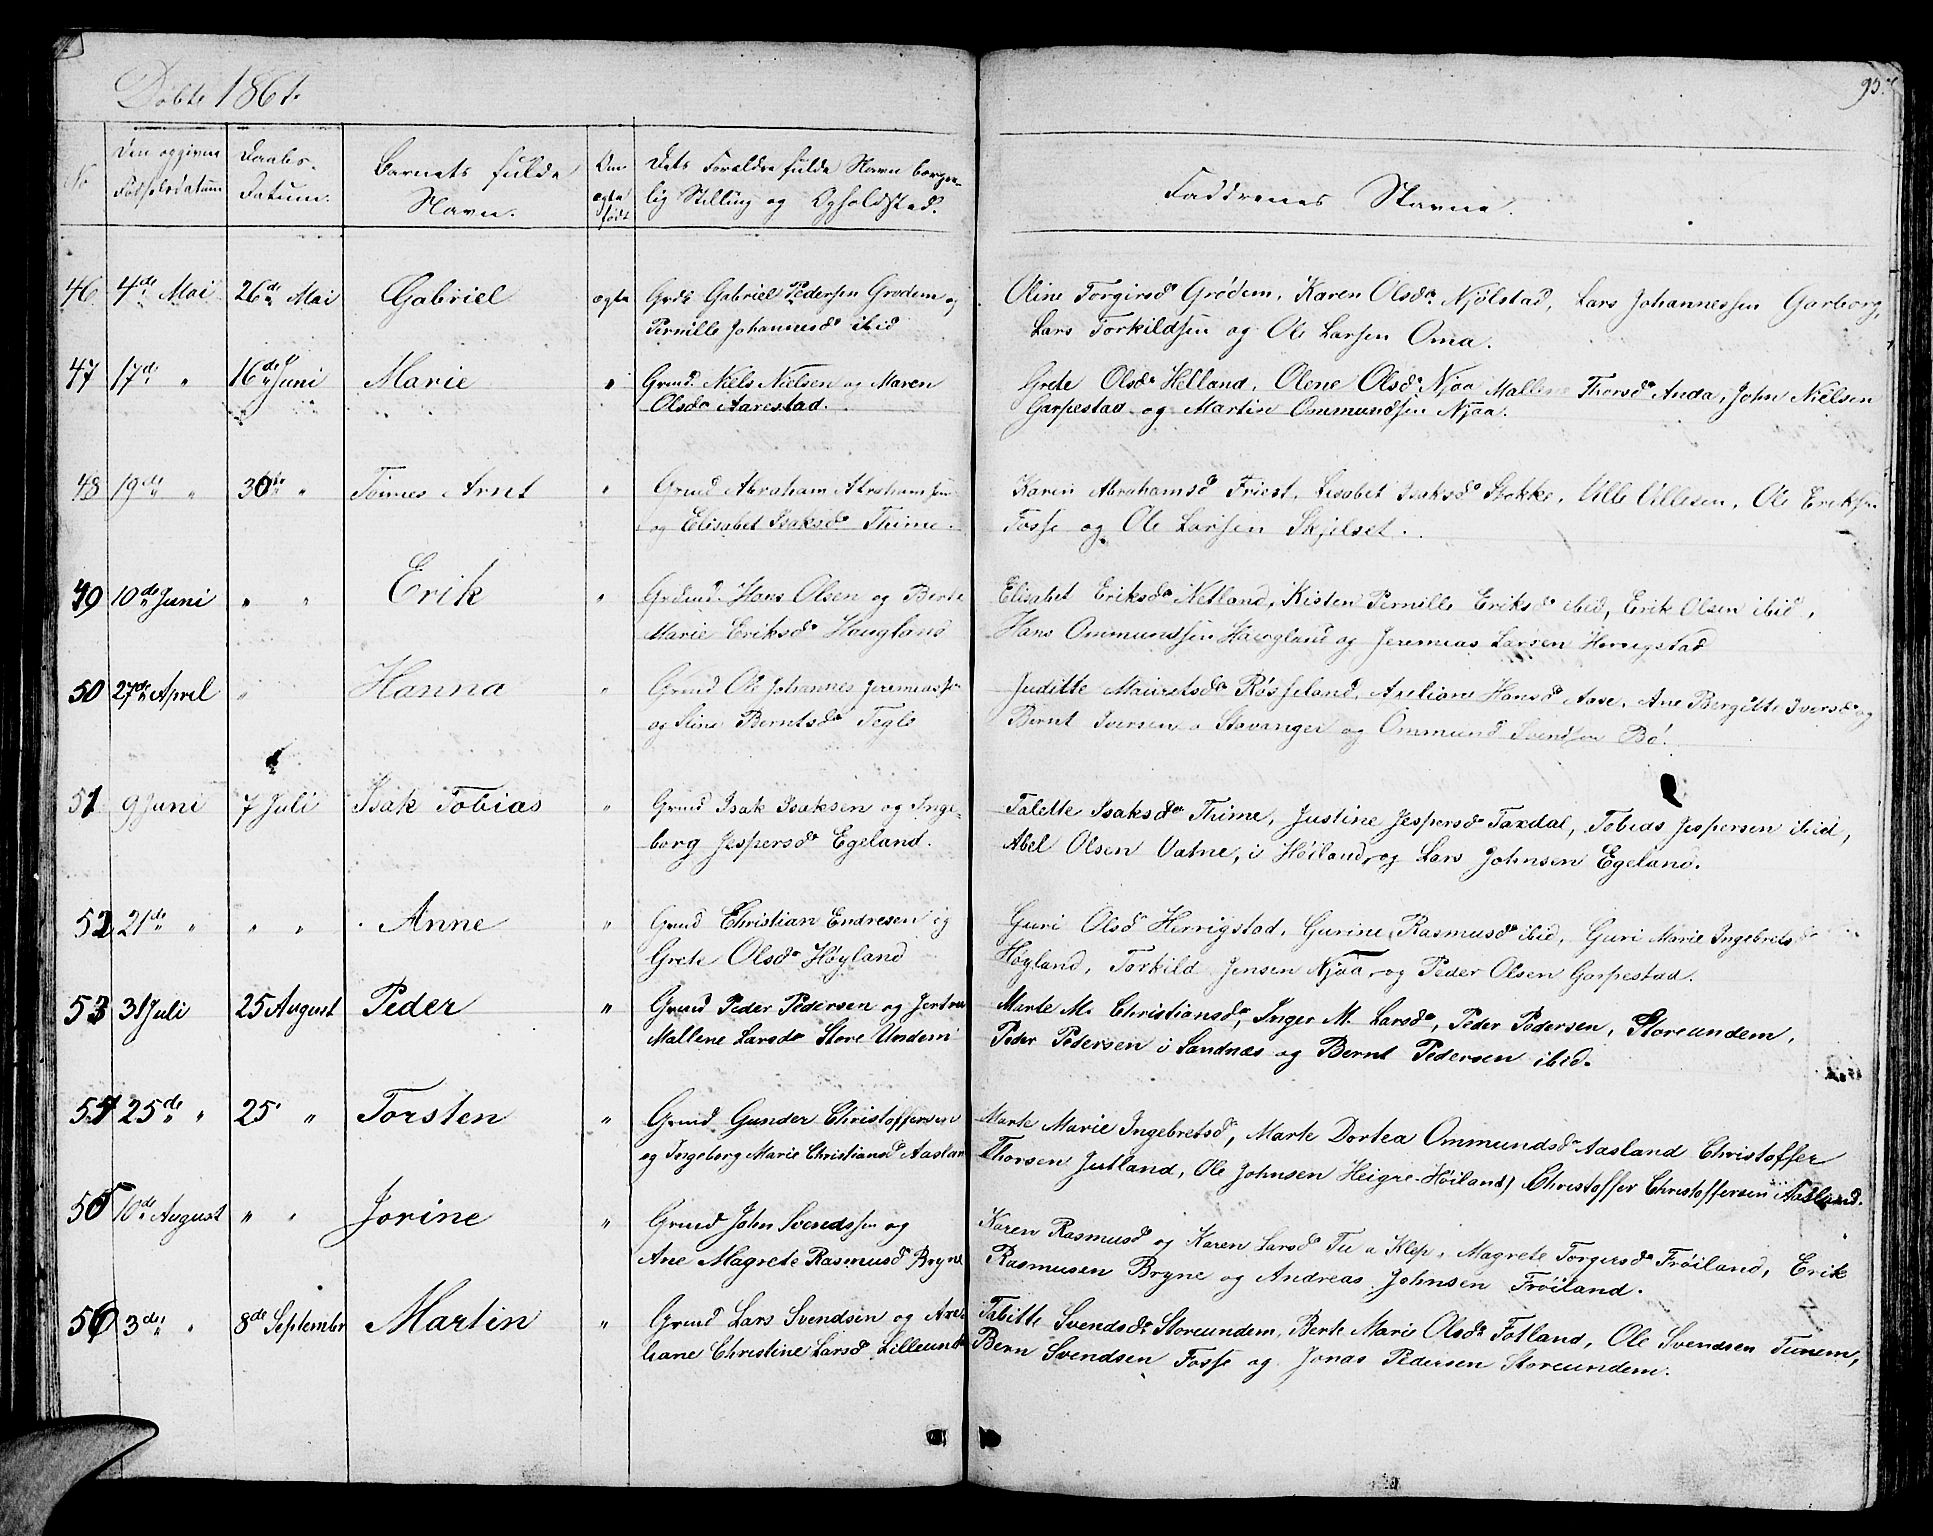 Døbte 1861.
95.
No
Den opgivne Fødselsdatum
Daabs-Datum.
Barnets fulde Navn.
Om ægte født
Dets Forældre fulde Navn borger-
lig Stilling og Opholdsted.
Faddrenes Navne.
46 4de Mai 26de Mai Gabriel ægte Grdb Gabriel Pedersen Grødem og
Pernille Johannesdr ibid
Oline Torgirsdr Grødem, Karen Olsdr Njølstad, Lars Johannessen Garborg,
Lars Torkildsen og Ole Larsen Oma.
47 17de " 16de Juni Marie " Grmd. Niels Nielsen og Maren
Olsdr Aarestad.
Grete Olsdr Helland, Olene Olsdr Njaa Mallene Thorsdr Anda, John Nielsen
Garpestad og Martin Ommundsen Njaa.
48 19de " 30de " Tønnes Arnt " Grmd Abraham Abrahamsen
og Elisabet Isaksdr Thime.
Karen Abrahamsd Friest, Lisabet Isaksdr Stokke, Ulle Ullesen, Ole Eriksen
Fosse og Ole Larssen Skjelset.
49 10de Juni " " Erik " Grdmd. Hans Olsen og Berte
Marie Eriksdr Haugland
Elisabet Eriksdr Netland, Kisten Pernille Eriksdr ibid, Erik Olsen ibid,
Hans Ommundsen Haugland og Jeremias Larsen Herrigstad
50 27de April " Hanna " Grmd Ole Johannes Jeremiassen
og Stine Berntsdr Tegle
Juditte Mauretsdr Røsseland, Axeliane Hansd Aase, Ane Bergitte Iversdr og
Bernt Iversen a Stavanger og Ommund Svendsen Bø.
51 9 Juni 7 Juli Isak Tobias " Grmd Isak Isaksen og Inge-
borg Jespersdr Egeland.
Talette Isaksdr Thime, Justine Jespersdr Taxdal, Tobias Jespersen ibid,
Abel Olsen Vatne, i Høiland, og Lars Johnsen Egeland.
52 21de " " " Anne " Grmd Christian Endresen og
Grete Olsdr Høyland
Guri Olsd Herrigstad, Gurine Rasmusdr ibid, Guri Marie Ingebretsdr
Høyland, Torkild Jensen Njaa, og Peder Olsen Garpestad.
53 31 Juli 25 August Peder " Grmd Peder Pedersen og Jertru
Mallene Larsdr Store Undem
Marte M. Christiansdr, Inger M. Larsdr, Peder Pedersen, Storeundem,
Peder Pedersen i Sandnæs og Bernt Pedersen ibid.
54 25de " 25 " Torsten " Grmd Gunder Christoffersen
og Ingeborg Marie Christiansd Aaslan
Marte Marie Ingebretsdr, Marte Dortea Ommundsdr Aasland Christoffer
Thorsen Jutland, Ole Johnsen Heigre-Høiland, Christoffer Christoffersen Aasland.
55 10de August " " Jorine " Grmd John Svendssen og
Ane Magrete Rasmusd Bryne
Karen Rasmusd og Karen Larsd Tu a Klep, Magrete Torgersdr Frøiland, Erik
Rasmusen Bryne og Andreas Johnsen Frøiland.
56 3de " 8de Septembr Martin " Grmd Lars Svendsen og Axe-
liane Christine Larsd Lilleund
Tabitte Svendsdr Storeundem, Berte Marie Olsdr Fotland, Ole Svendsen Tunem,
Bern Svendsen Fosse og Jonas Pedersen Storeundem.